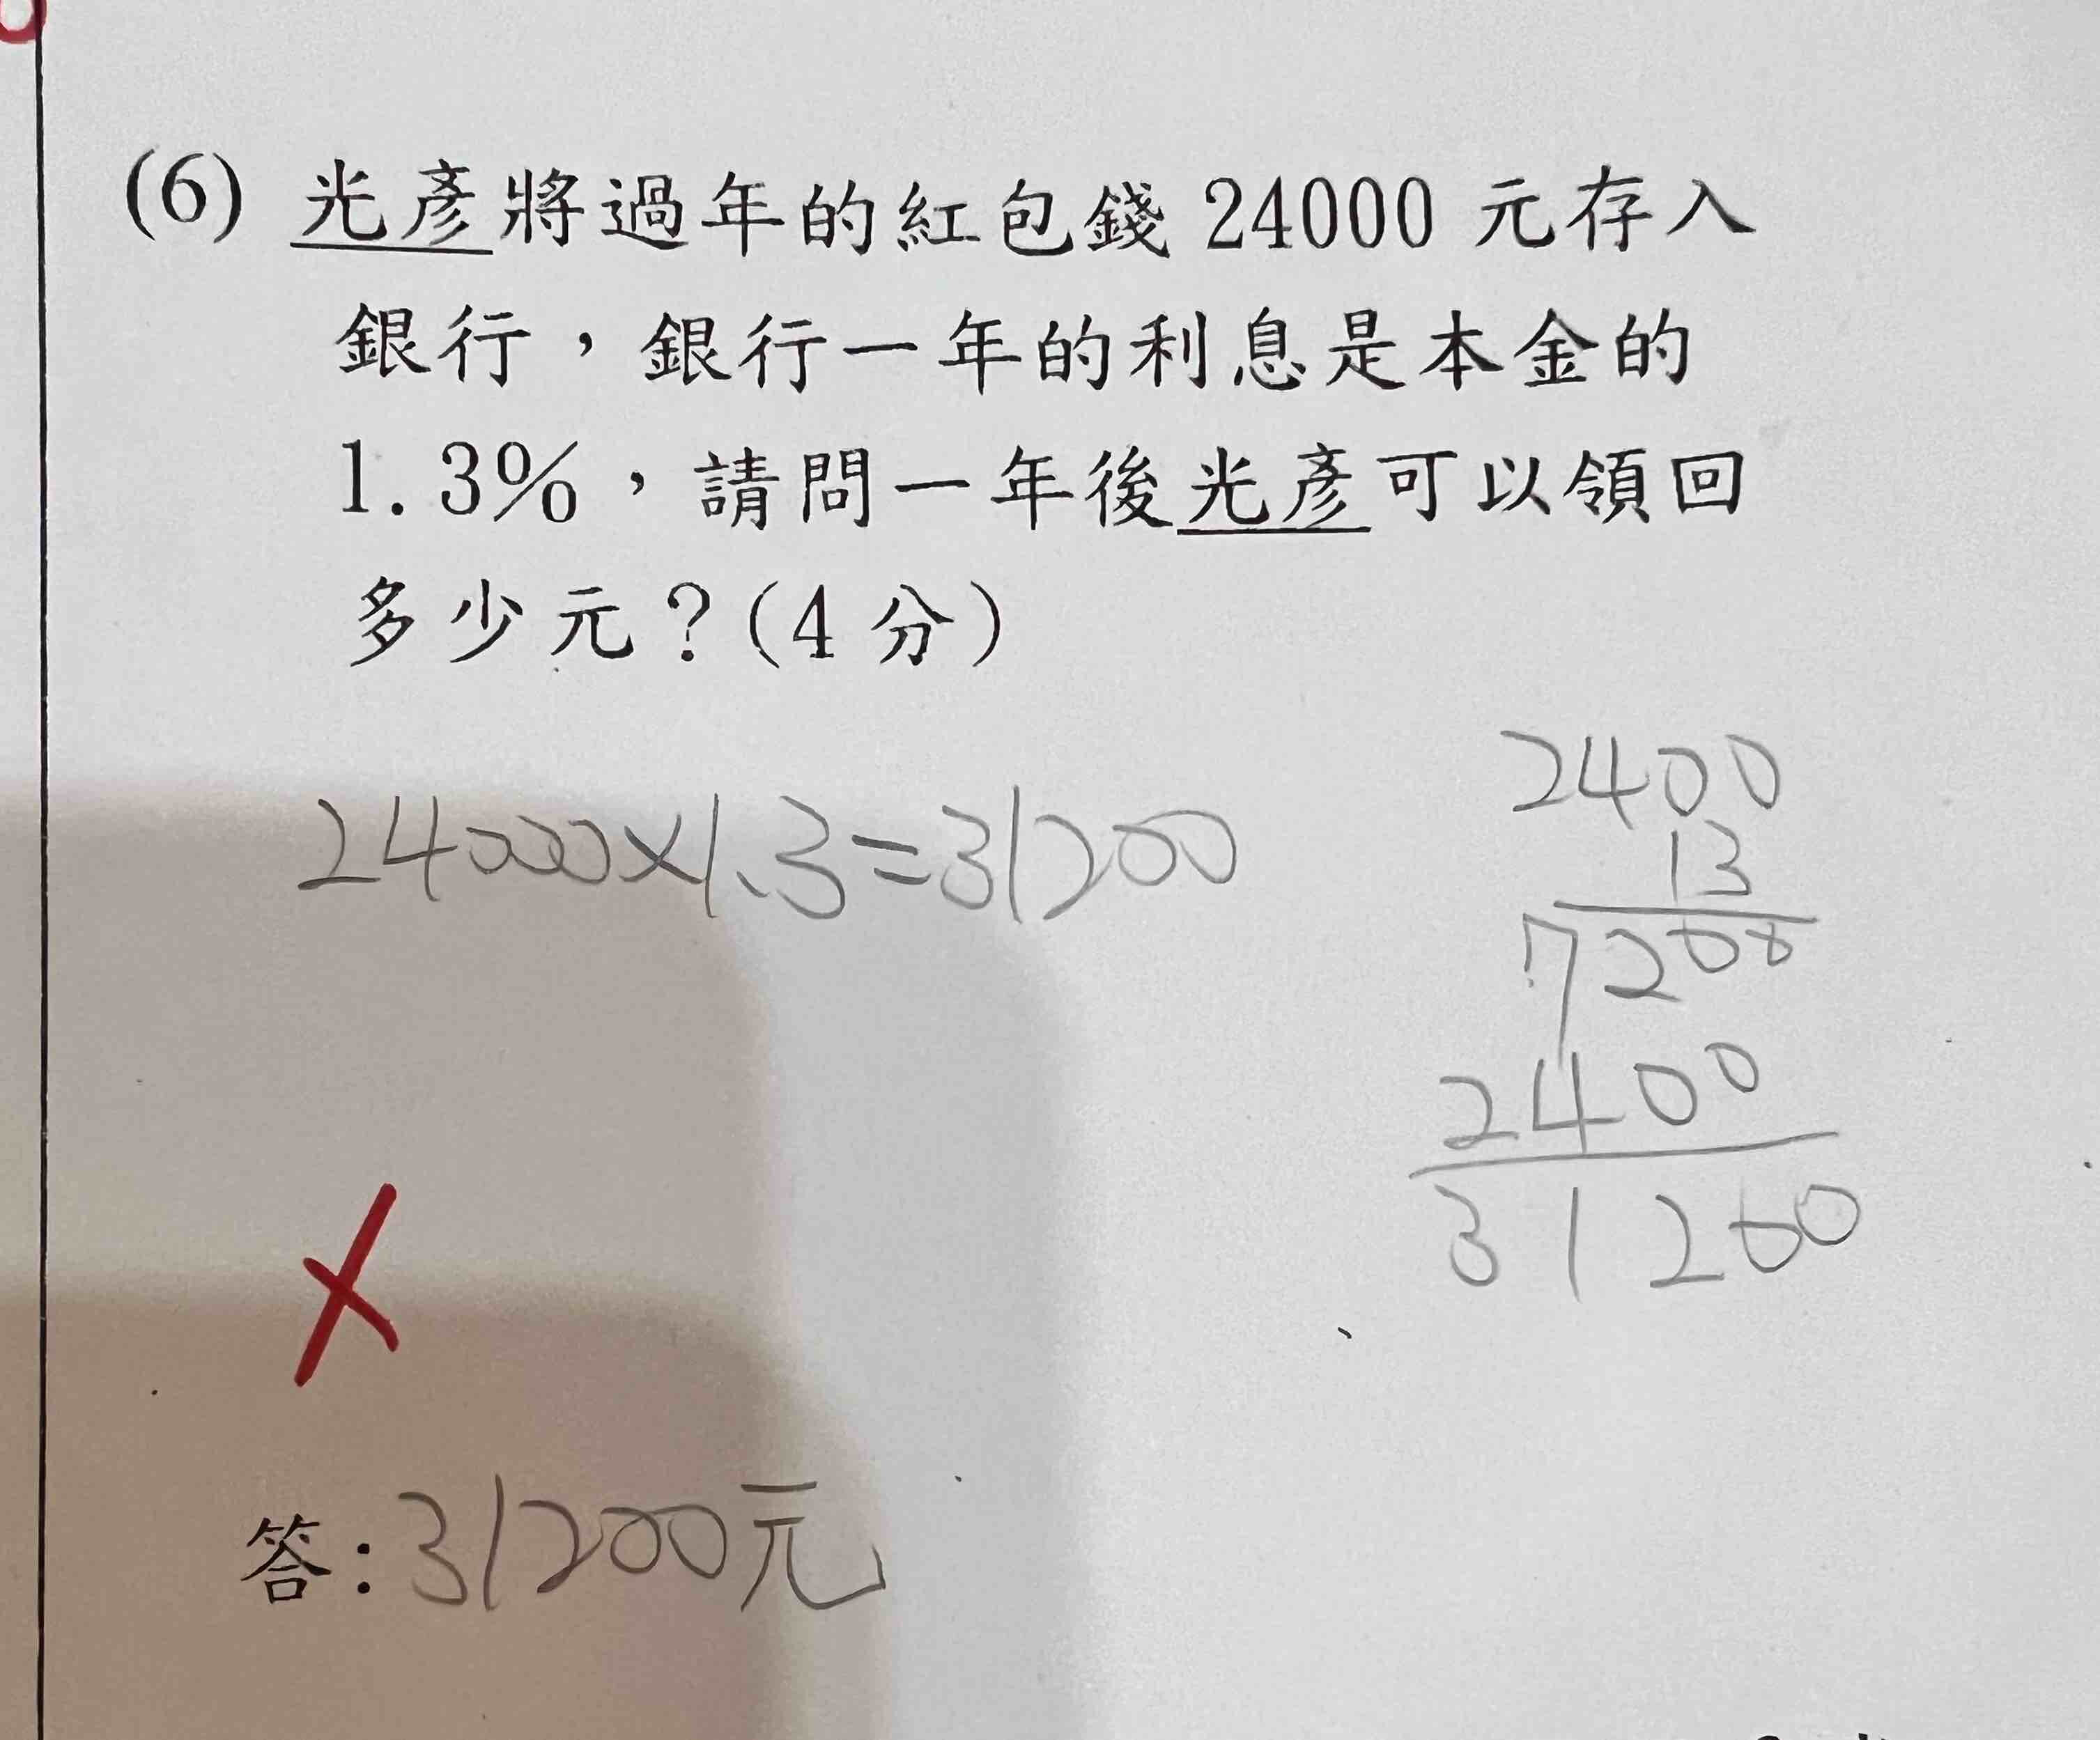 (6) 光彥將過年的紅包錢 24000 元存入
銀行，銀行一年的利息是本金的
1.3%，請問一年後光彥可以領回
多少元？(4 分)
24000×1.3=31200
2400
13
7200
2400
31200
答：31200元